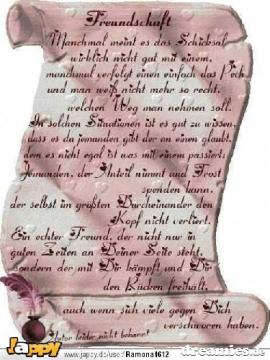 Freundschaft
Manchmal meint es das Schicksal
wirklich nicht gut mit einem,
manchmal verfolgt einen einfach das Pech
und man weiß nicht mehr so recht,
welchen Weg man nehmen soll.
In solchen Situationen ist es gut zu wissen,
dass es da jemanden gibt der an einen glaubt,
dem es nicht egal ist was mit einem passiert.
Jemanden, der Anteil nimmt und Trost
spenden kann,
der selbst im großten Durcheinander den
Kopf nicht verliert.
Ein echter Freund, der nicht nur in
guten Zeiten an Deiner Seite steht,
sondern der mit Dir kämpft und Dir
den Rücken freihält,
auch wenn sich viele gegen Dich
verschworen haben.
Autor leider nicht bekannt
Jappy
www.jappy.de/user/Ramona1612
dreamies.de